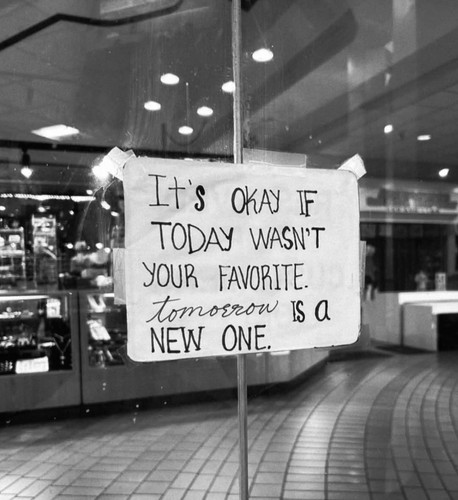 It's OKAY IF
TODAY WASN'T
YOUR FAVORITE.
tomorrow IS a
NEW ONE.